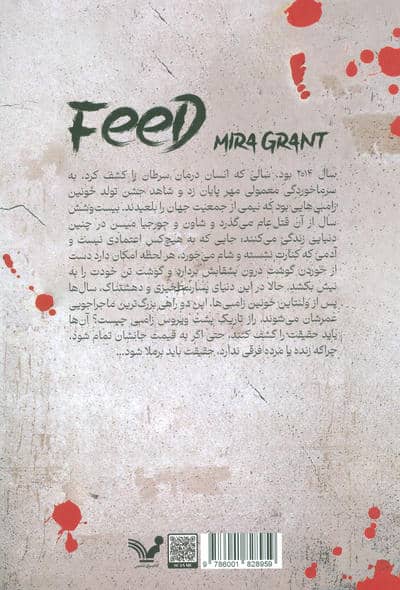 FeeD
MIRA GRANT
سال ۲۰۱۴ بود. سالی که انسان درمان سرطان را کشف کرد، به
سرماخوردگی معمولی مهر پایان زد و شاهد جشن تولد خونین
زامبی‌هایی بود که نیمی از جمعیت جهان را بلعیدند. بیست‌وشش
سال از آن قتل‌عام می‌گذرد و شاون و جورجیا میسن در چنین
دنیایی زندگی می‌کنند؛ جایی که به هیچ‌کس اعتمادی نیست و
آدمی که کنارت نشسته و شام می‌خورد، هر لحظه امکان دارد دست
از خوردن گوشت درون بشقابش بردارد و گوشت تن خودت را به
نیش بکشد. حالا در این دنیای و دهشتناک، سال‌ها
پس از ولنتاین خونین زامبی‌ها، این دو راهی بزرگ‌ترین ماجراجویی
عمرشان می‌شوند. راز تاریک پشت ویروس زامبی چیست؟ آن‌ها
باید حقیقت را کشف کنند، حتی اگر به قیمت جانشان تمام شود.
چراکه زنده یا مرده فرقی ندارد، حقیقت باید برملا شود...
SCAN ME
9 786001 828959